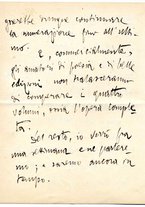 potrebbe dunque continuare
la numerazione fino all'ulti-
mo.
E, commercialmente,
gli amatori di poesia e di belle
edizioni non tralasceranno
di comperare i quattro
volumi, ossia l'opera comple
ta.
Del resto, io verrò fra
una settimana e ne parlere
mo; e saremo ancora in
tempo.